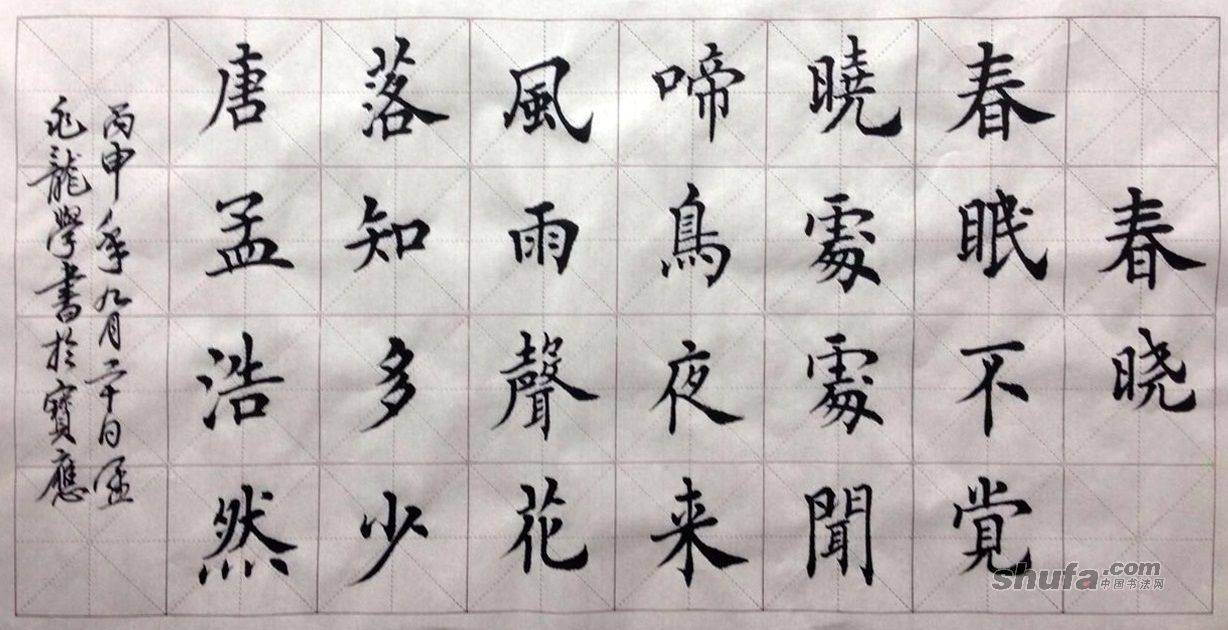 春晓
春眠不覚
曉處處聞
啼鳥夜来
風雨聲花
落知多少
唐孟浩然
丙申年九月二十日孟
永龍學書於寶應
shufa.com
中国书法网